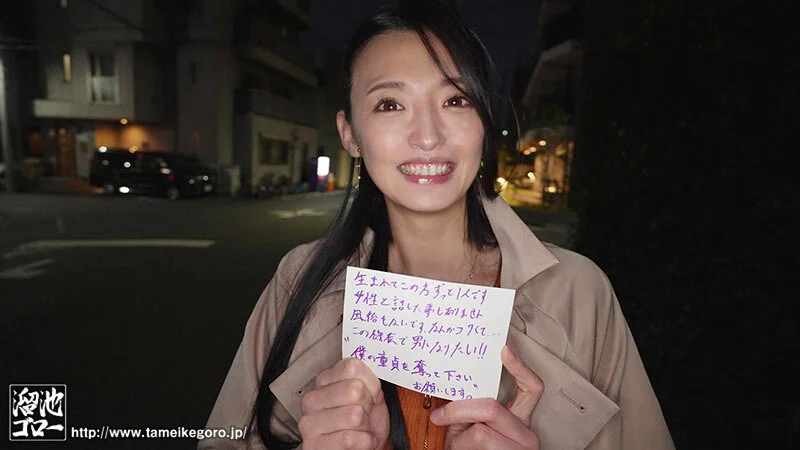 生まれてこの方ずっと1人です
女性と話した事もありません
風俗もないです、なんかコワくて...
この機会で男になりたい!!
"僕の童貞を奪って下さい"
お願いします。
溜池
ゴロー
http://www.tameikegoro.jp/